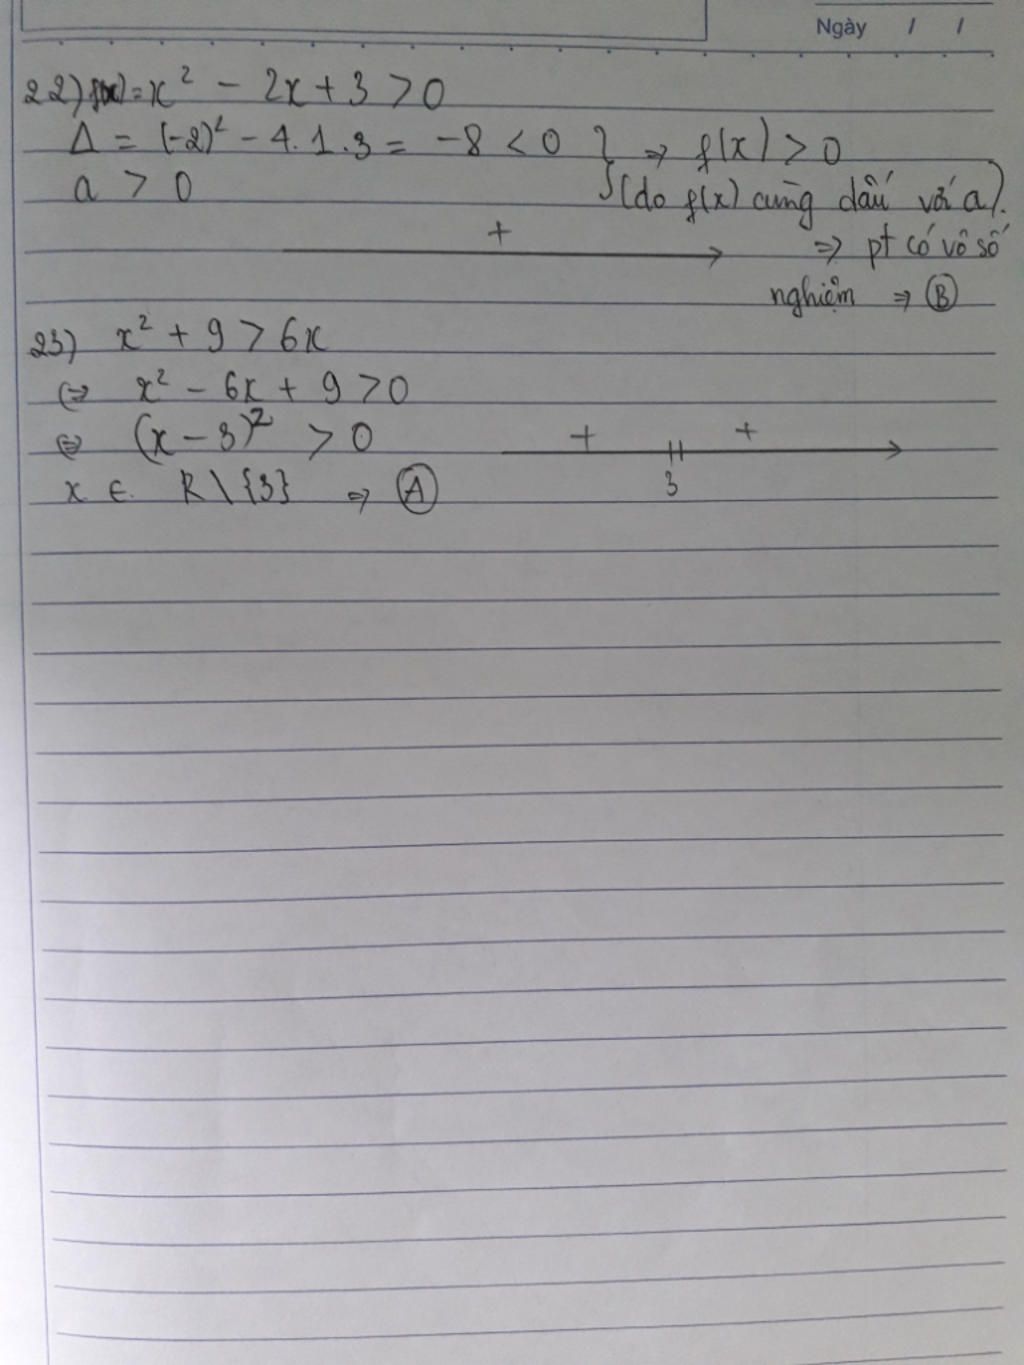 Ngày / /
22) f(x) = x² - 2x + 3 > 0
Δ = (-2)² - 4.1.3 = -8 < 0 } ⇒ f(x) > 0
a > 0 (do f(x) cùng dấu với a).
+ ⇒ pt có vô số
nghiệm ⇒ Ⓑ
23) x² + 9 > 6x
⇔ x² - 6x + 9 > 0
⇔ (x - 3)² > 0 + +
x ∈ R \ {3} ⇒ Ⓐ 3